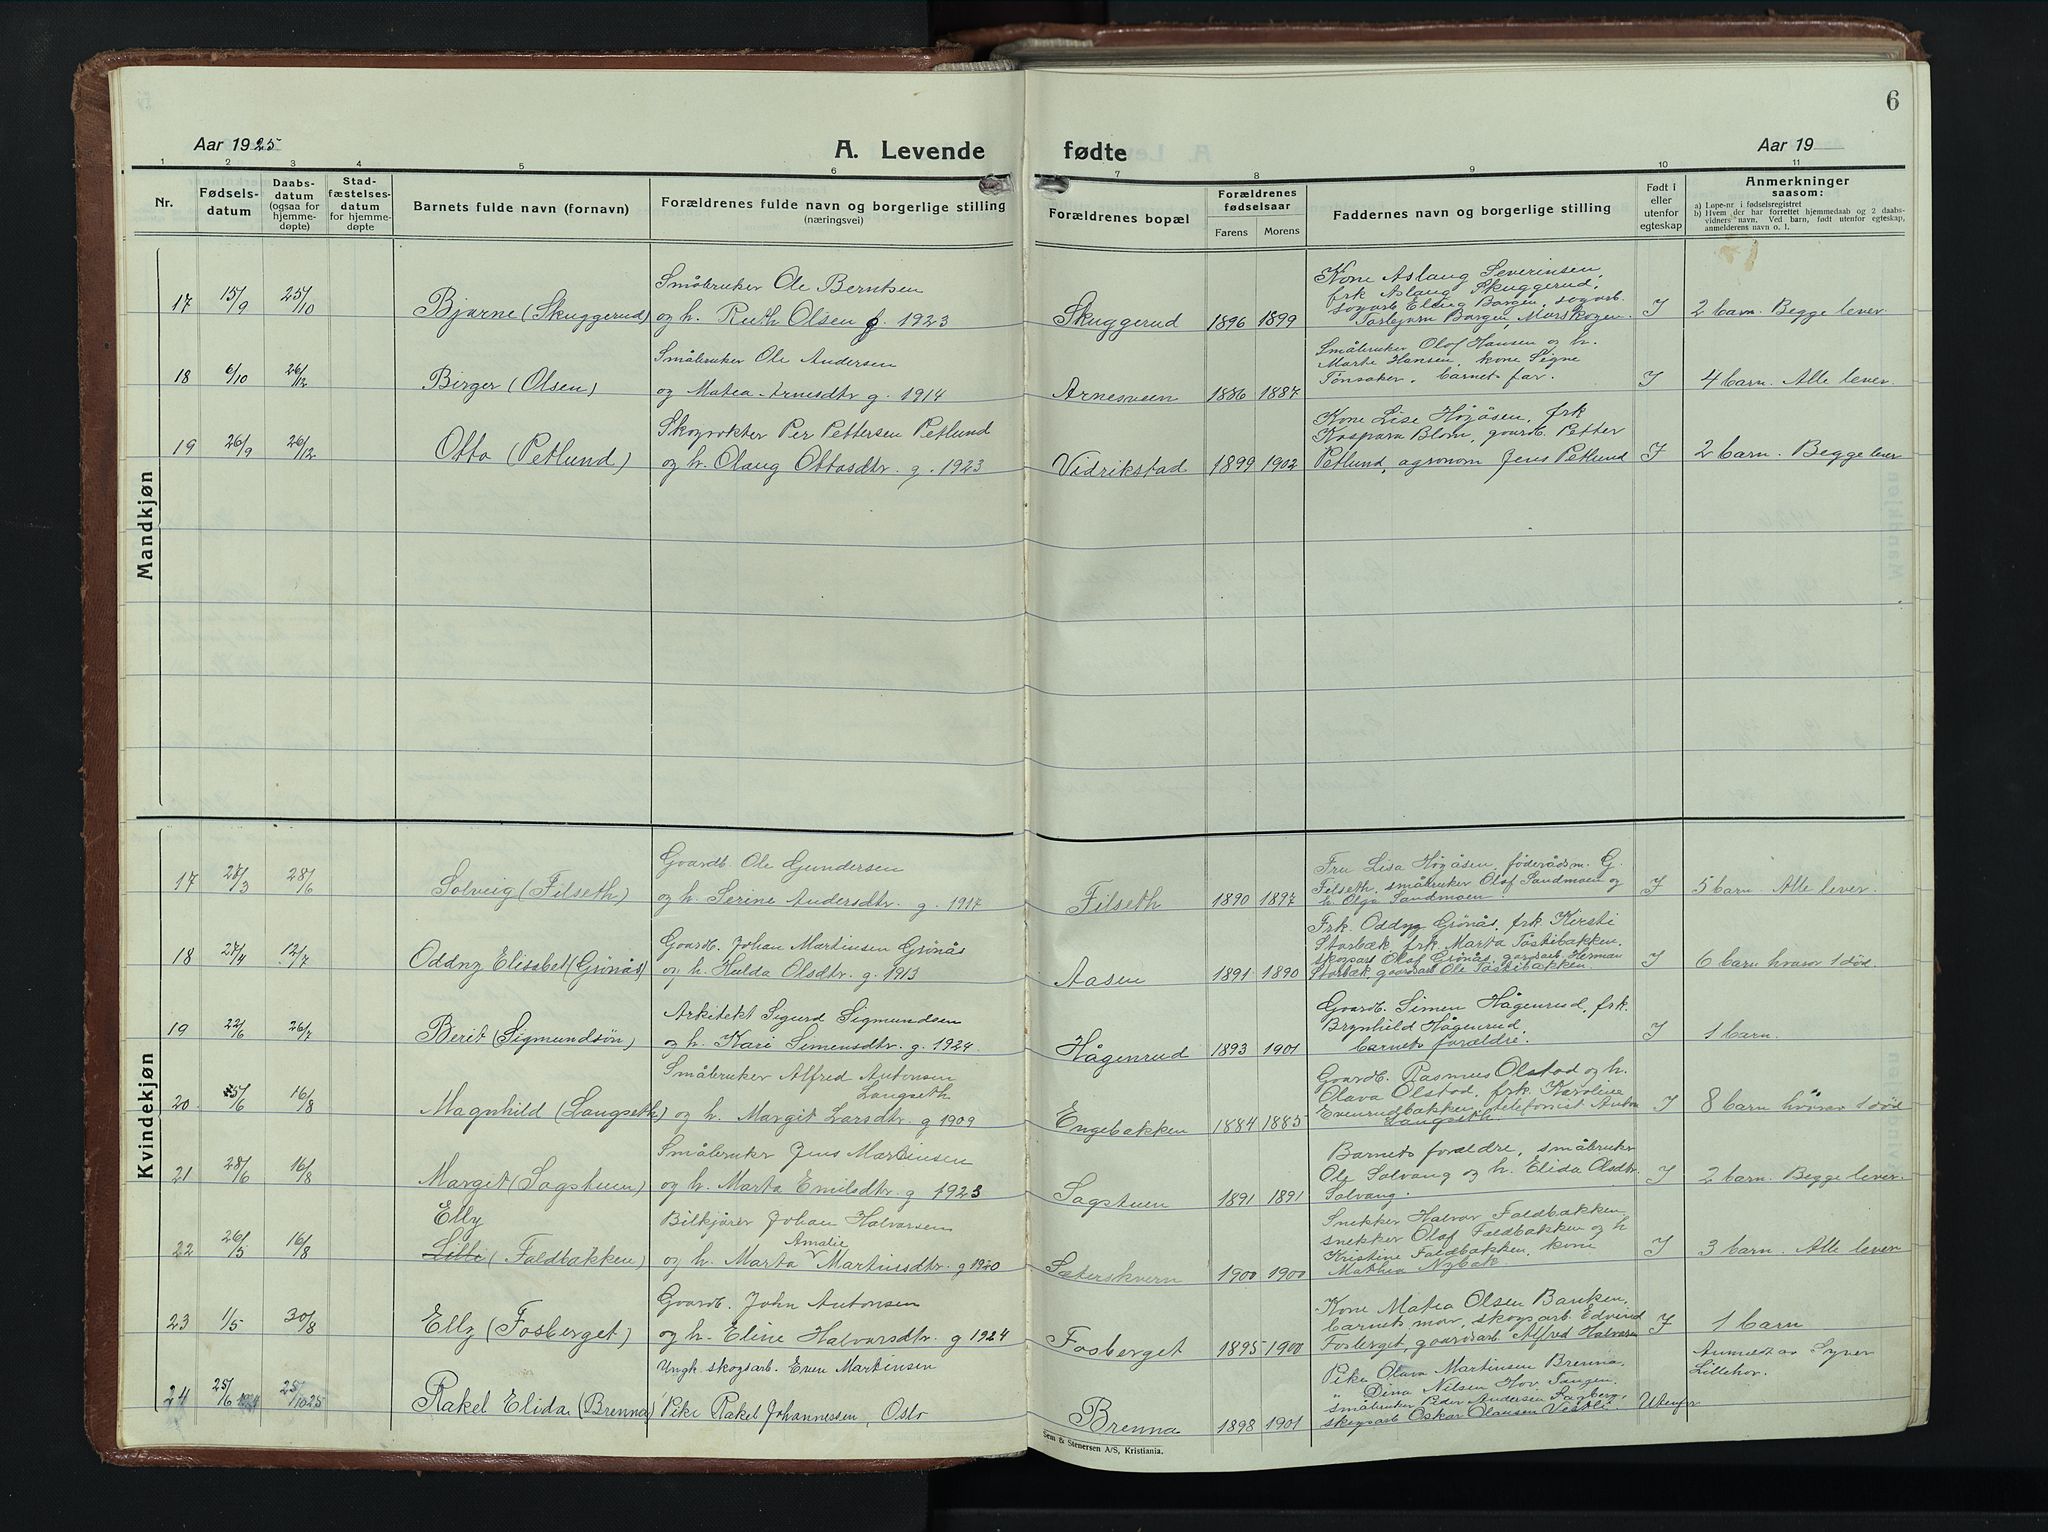 6
Aar 1925
A. Levende
fødte
Aar 19
1 2 3 4 5 6 7 8 9 10 11
Nr.
Fødsels-
datum
Daabs-
datum
(ogsaa for
hjemme-
døpte)
Stad-
fæstelses-
datum
for hjemme-
døpte
Barnets fulde navn (fornavn)
Forældrenes fulde navn og borgerlige stilling
(næringsvei)
Forældrenes bopæl
Forældrenes
fødselsaar
Farens Morens
Faddernes navn og borgerlige stilling
Født i
eller
utenfor
egteskap
Anmerkninger
saasom:
a) Løpe-nr i fødselsregistret
b) Hvem der har forrettet hjemmedaab og 2 daabs-
vidners navn. Ved barn, født utenfor egteskap,
anmelderens navn o. l.
Mandkjøn
17 15/9 25/10 Bjarne (Skuggerud)
Småbruker Ole Berntsen
og h. Ruth Olsen g. 1923
Skuggerud 1896 1899
Kone Aslaug Severinsen,
frk Aslaug Skuggerud,
Borgen, Morskogen
I 2 barn. Begge lever
18 6/10 26/12 Birger (Olsen)
Småbruker Ole Andersen
og Matea Arnesdtr g. 1914
Arnesveen 1886 1887
Småbruker Olof Hansen og h.
Marte Hansen, kone Signe
Tønsaker, barnets far.
I 4 barn. Alle lever
19 26/9 26/12 Otto (Petlund)
Skogvokter Per Pettersen Petlund
og h. Olaug Ottosdtr. g. 1923
Vidrikstad 1899 1902
Kone Lise Højåsen, frk
Kaspara Blom, gaardb. Petter
Petlund, agronom Jens Petlund
I 2 barn. Begge lever
Kvindekjøn
17 27/3 28/6 Solveig (Filseth)
Gaardb. Ole Gundersen
og h. Serine Andersdtr. g. 1917
Filseth 1890 1897
Fru Lisa Højåsen, føderådsm. G.
Filseth, småbruker Olof Sandmoen og
h. Olga Sandmoen.
I 5 barn. Alle lever.
18 27/4 12/7 Oddny Elisabet (Grönås)
Gaardb. Johan Martinsen Grönås
og h. Hulda Olsdtr. g. 1913
Aasen 1891 1890
Frk. Oddyg Grönås, frk. Kirsti
Storbæk, frk. Marta Tostibakken,
skogsarb Olaf Grönås, gardsarb. Herman
Storbæk, gaardsarb Ole Tostibakken.
I 6 barn hvorav 1 död.
19 22/6 26/7 Berit (Sigmundsön)
Arkitekt Sigurd Sigmundsen
og h. Kari Simensdtr. g. 1924.
Hågenrud 1893 1901
Gaardb. Simen Hågenrud, frk.
Brynhild Hågenrud,
barnets forældre.
I 1 barn.
20 5/6 16/8 Magnhild (Langseth)
Småbruker Alfred Antonsen
Langseth
og h. Margit Larsdtr. g 1909
Engebakken 1884 1885
Gaardb. Rasmus Olstad og h.
Olava Olstad, frk. Karoline
Evenrudbakken, telefonist Anton
Langseth.
I 8 barn hvorav 1 död
21 28/6 16/8 Margit (Sagstuen)
Småbruker Jens Martinsen
og h. Marta Emilsdtr. g 1923
Sagstuen 1891 1891
Barnets forældre, småbruker
Ole Solvang og h. Elida Olsdtr.
Solvang.
I 2 barn. Begge lever.
22 26/5 16/8 Elly
Lilli (Faldbakken)
Bilkjører Johan Halvorsen
Amalie
og h. Marta Martinsdtr. g 1920
Sæterskvern 1900 1900
Snekker Halvor Faldbakken,
snekker Olof Faldbakken og h
Kristine Faldbakken, kone
Mathea Nybak
I 3 barn. Alle lever
23 1/5 30/8 Elly (Fosberget)
Gaardb. John Antonsen
og h. Eline Halvorsdtr. g 1924
Fosberget 1895 1900
Kone Matea Olsen Banken,
barnets mor, skogsarb. Edvind
Fosberget, gaardsarb Alfred Halvorsen
I 1 barn
24 25/6 1924 25/10 25 Rakel Elida (Brenna)
Ungk. skogsarb. Even Martinsen
Pike Rakel Johannessen, Oslo
Brenna 1898 1901
Pike Olava Martinsen Brenna,
" Dina Nilsen Hov Sangen,
småbruker Peder Andersen Sagberg,
skogsarb Oskar Olausen Vestli
Utenfor
Anmeldt av Syver
Lillehov.
Sem & Stenersen A/S, Kristiania.